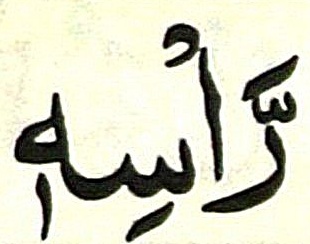 رَّأْسِهٖ